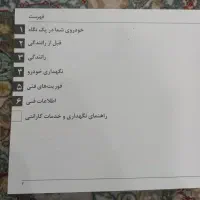 فهرست
خودروی شما در یک نگاه ۱
قبل از رانندگی ۲
رانندگی ۳
نگهداری خودرو ۴
فوریت‌های فنی ۵
اطلاعات فنی ۶
راهنمای نگهداری و خدمات گارانتی